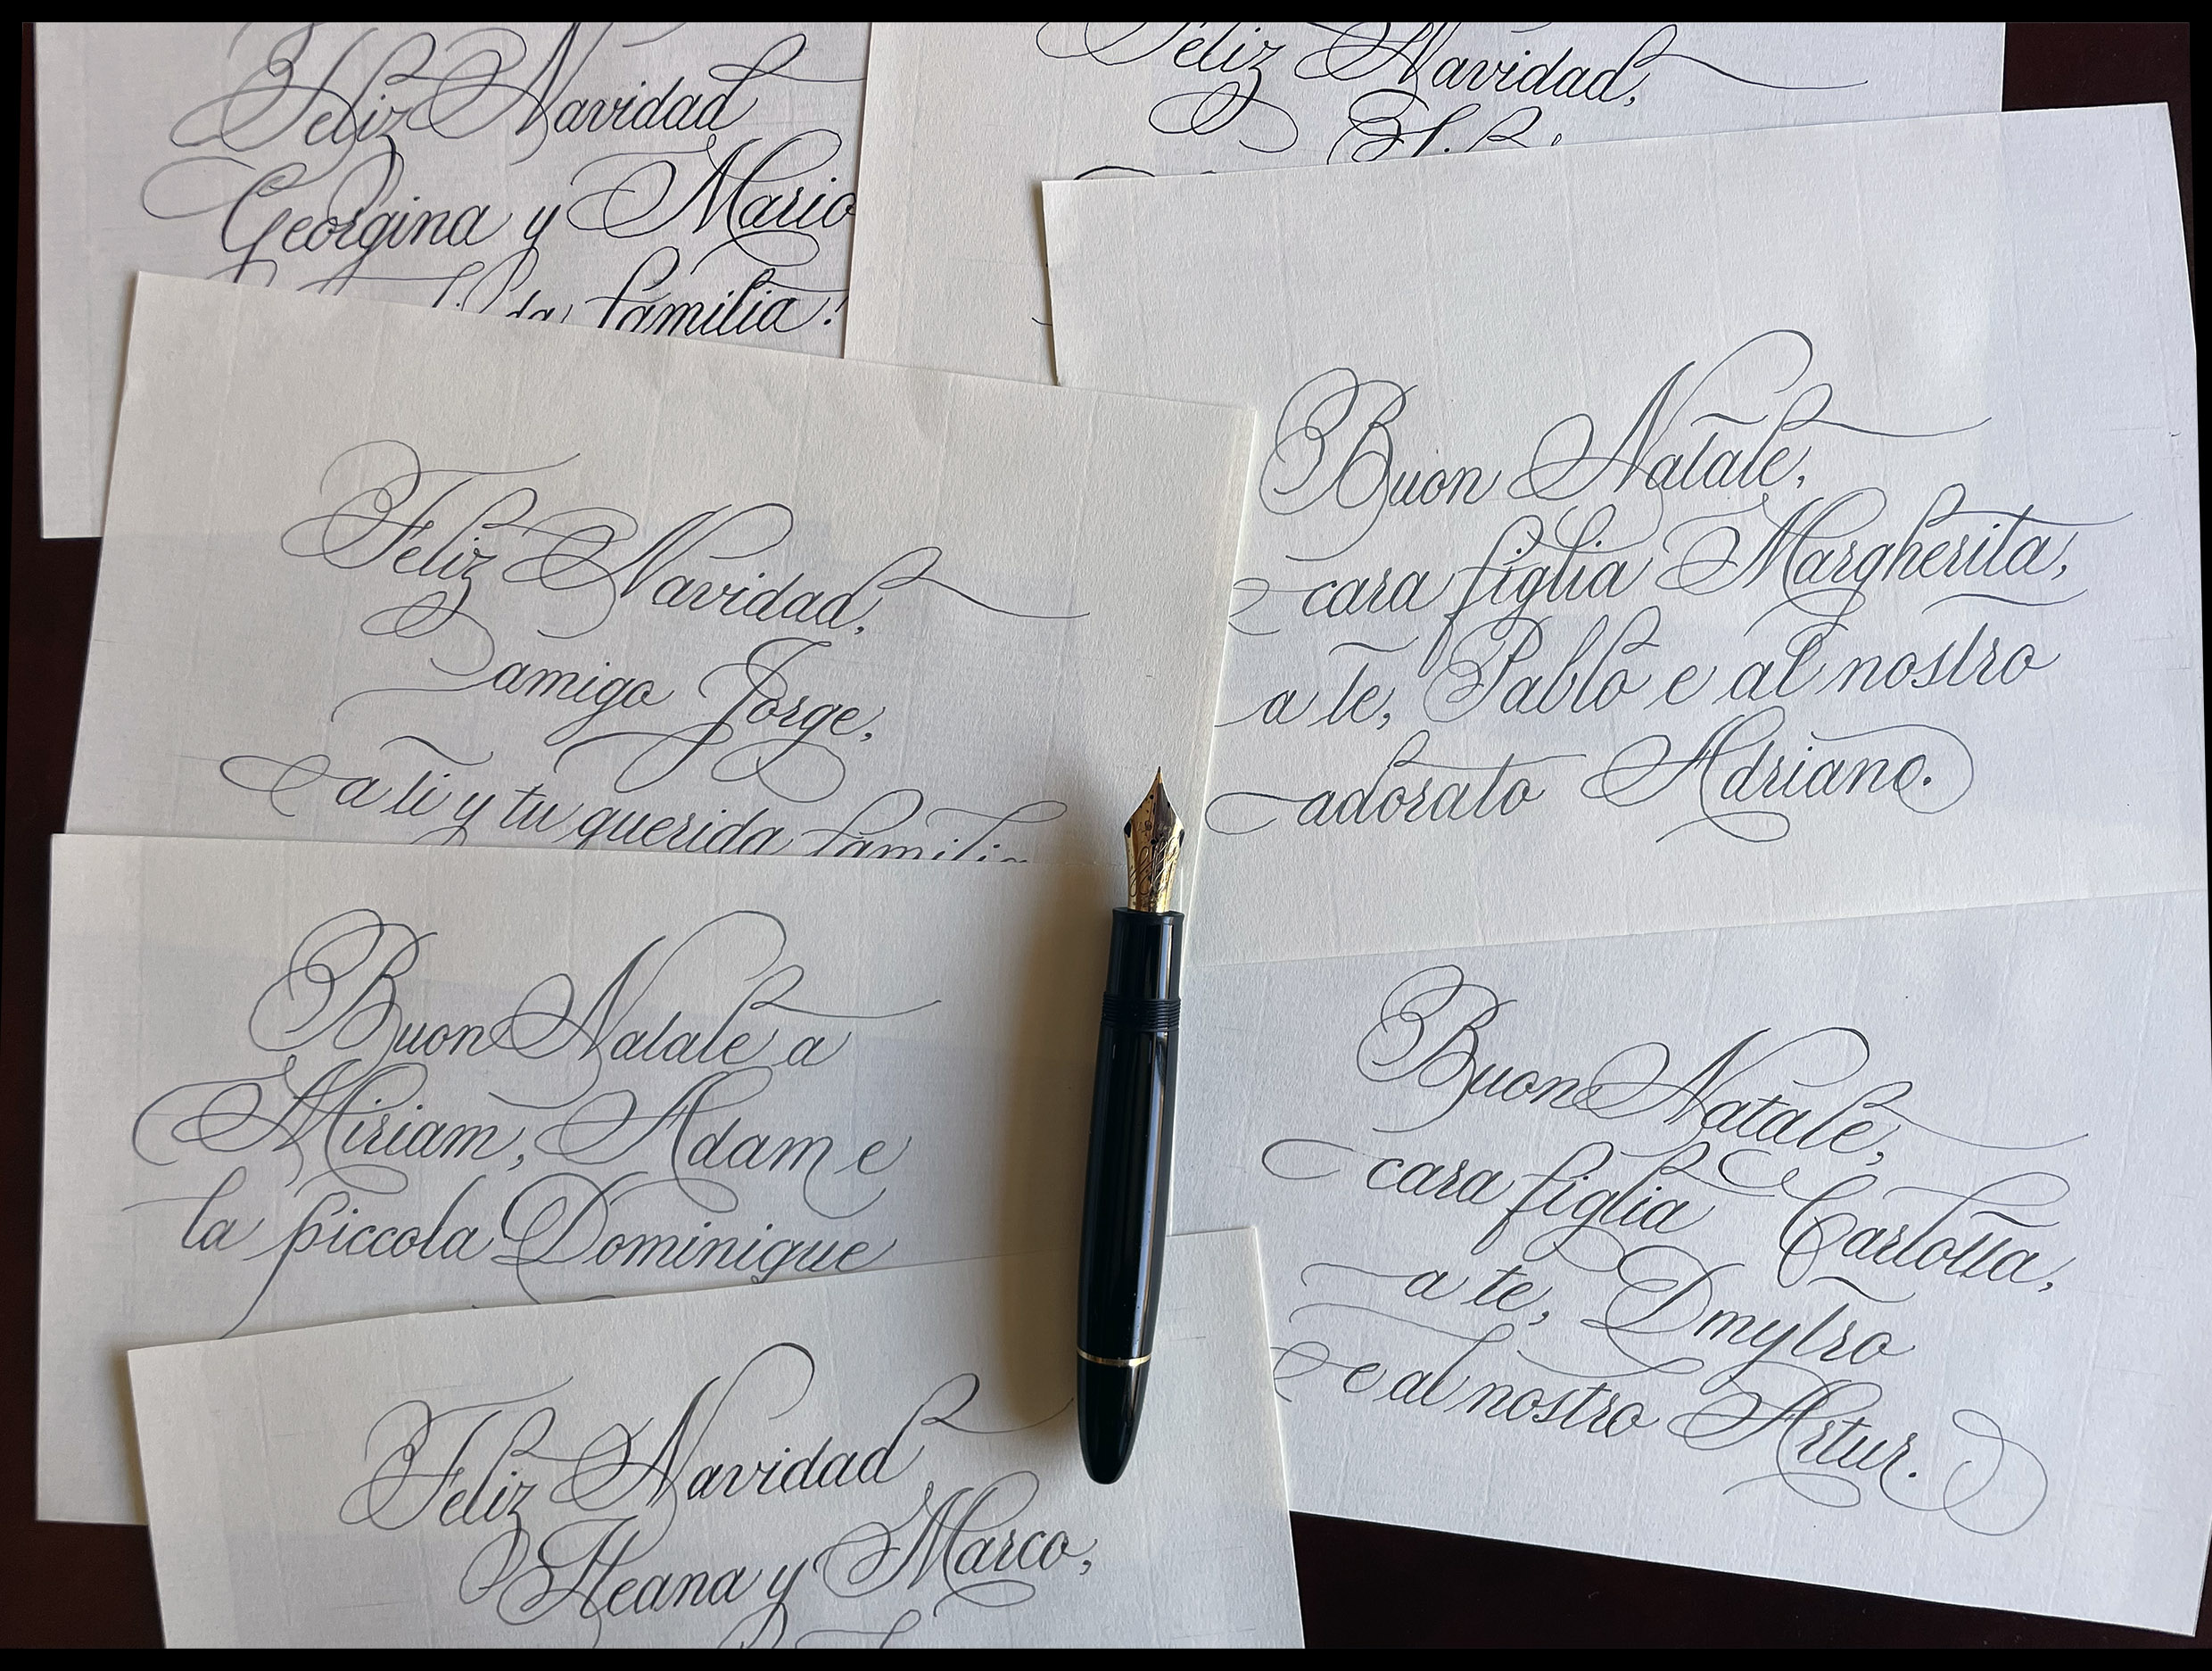 Feliz Navidad
Georgina y Mario
familia!
Feliz Navidad,
Feliz Navidad,
amigo Jorge,
a ti y tu querida familia
Buon Natale,
cara figlia Margherita,
a te, Pablo e al nostro
adorato Adriano.
Buon Natale a
Miriam, Adam e
la piccola Dominique
Buon Natale,
cara figlia Carlotta,
a te, Dmytro
e al nostro Artur.
Feliz Navidad
Ileana y Marco,